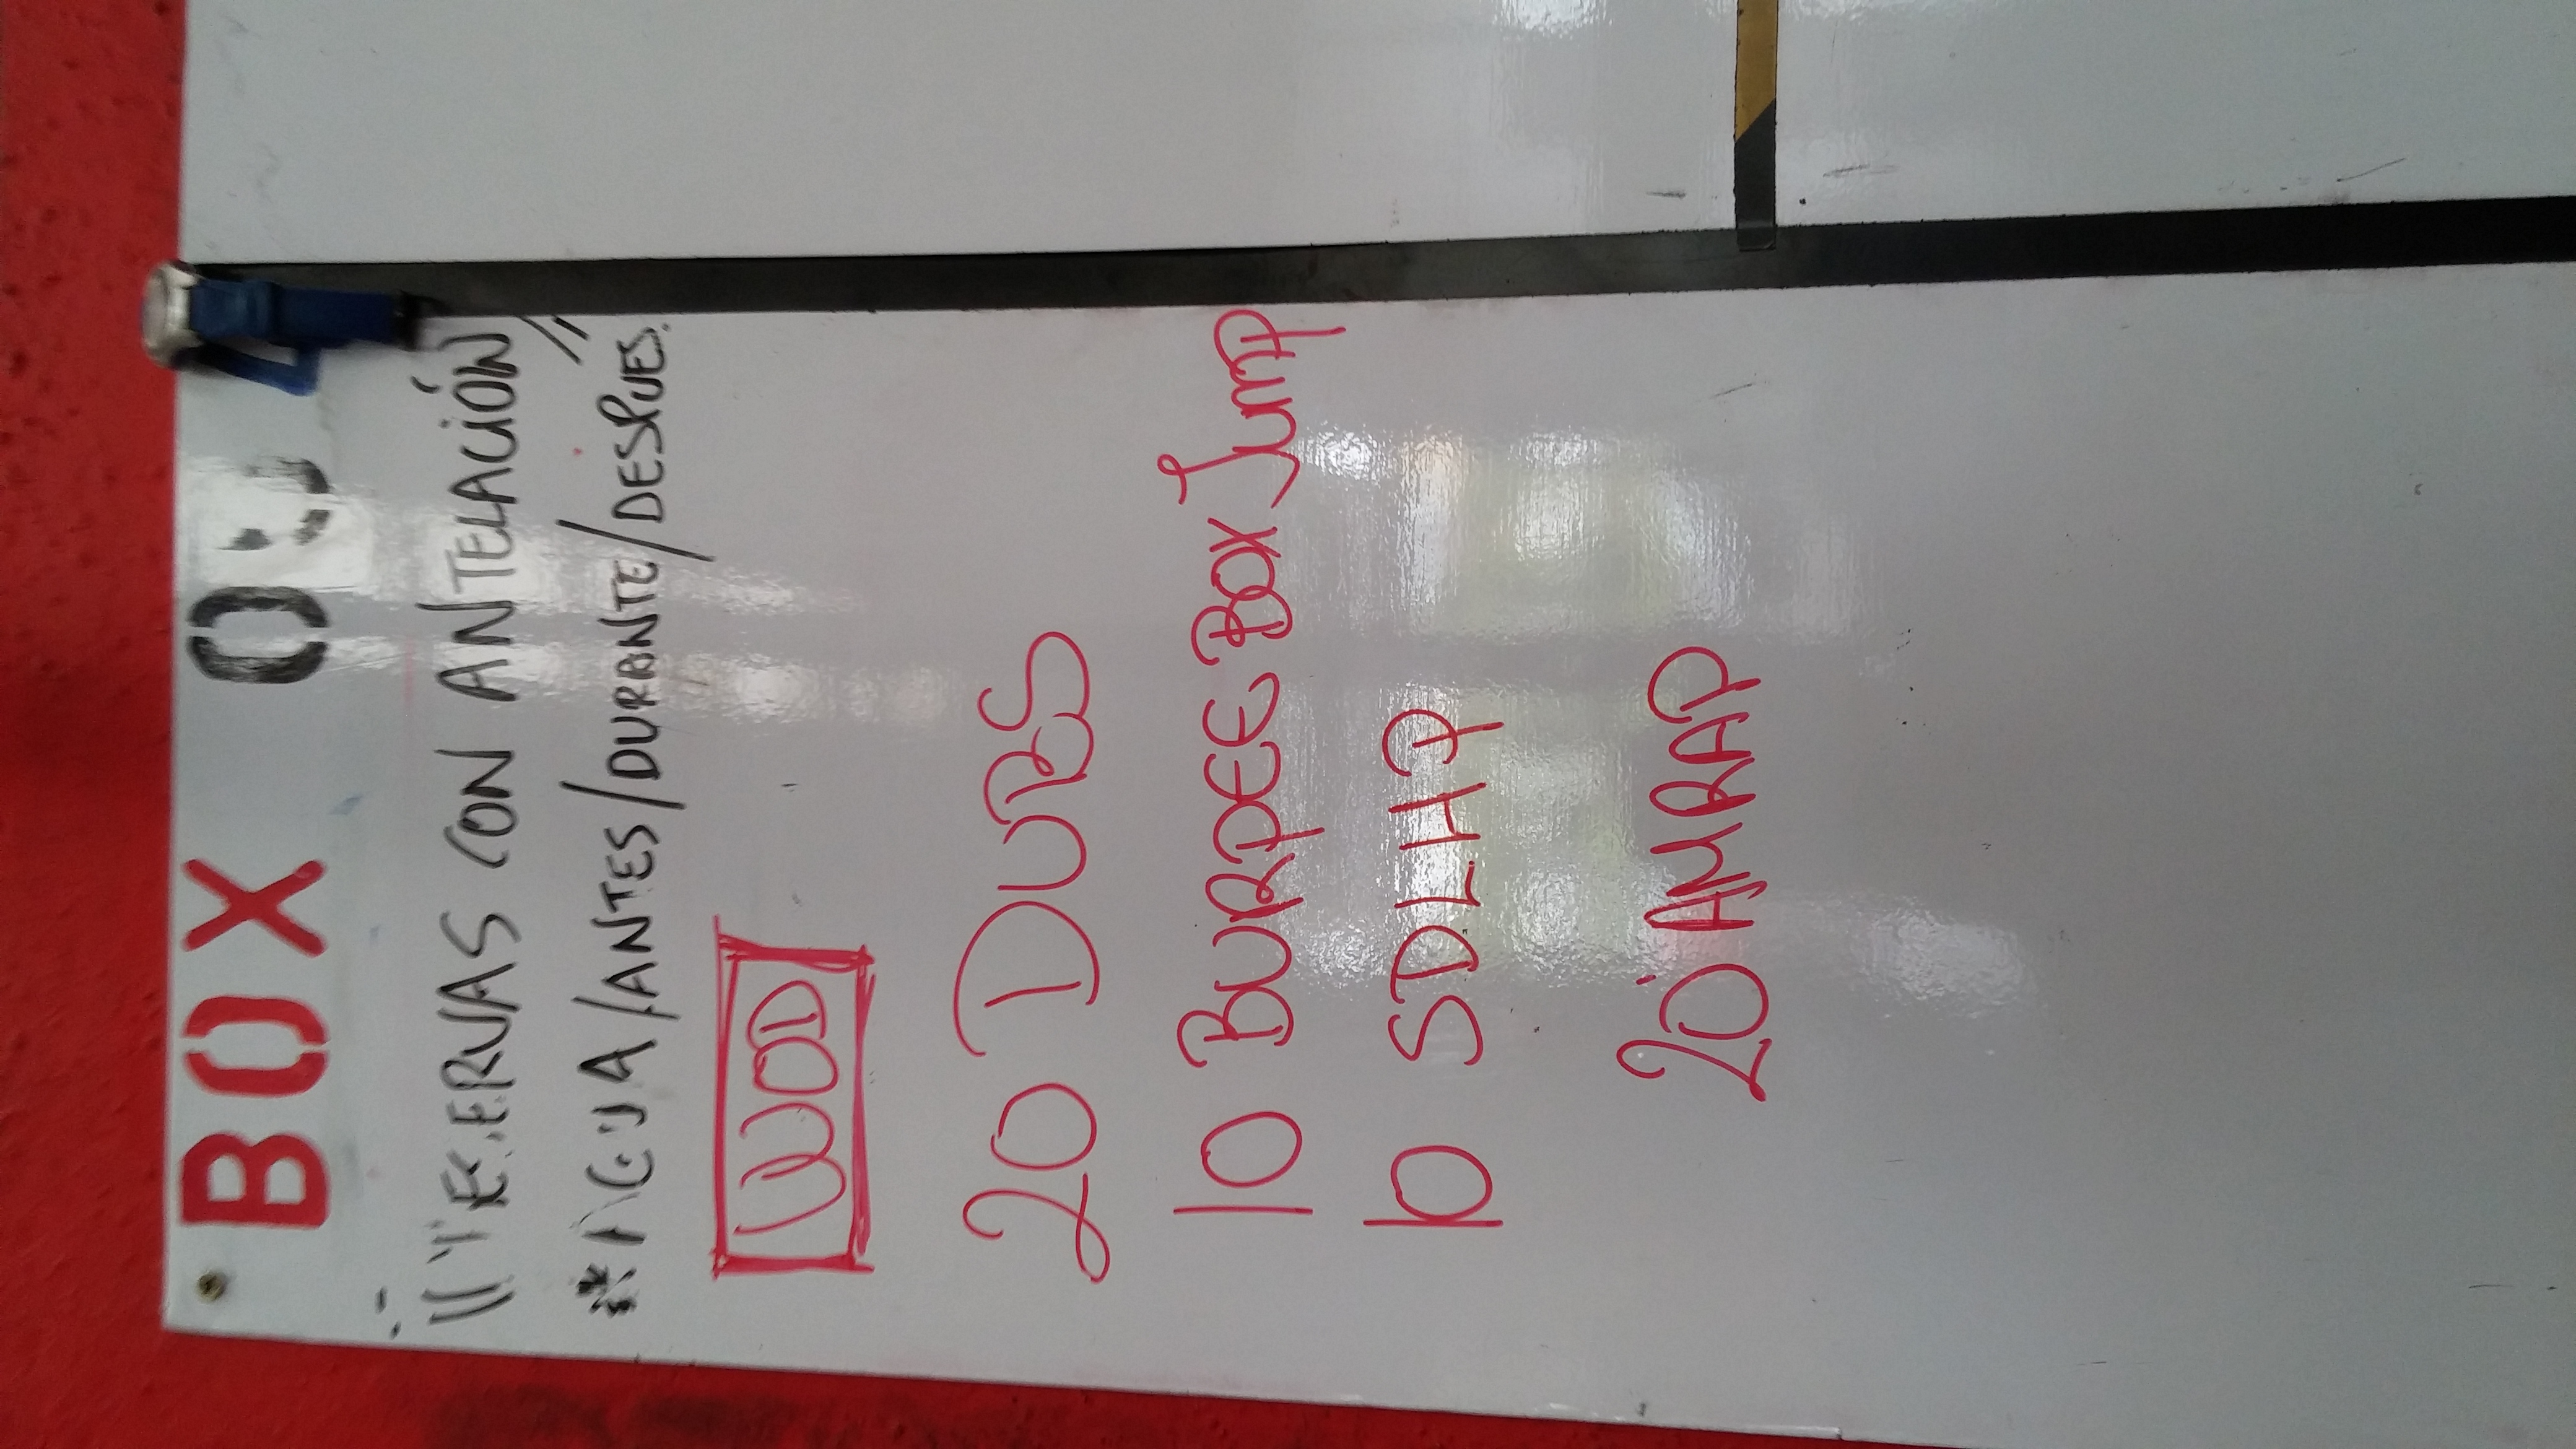 BOX 09
CON ANTELACIÓN //
AGUA/ANTES/DURANTE/DESPUES.
WOD
20 DUBS
10 BURPEE BOX Jump
10 SDLHP
20' AMRAP